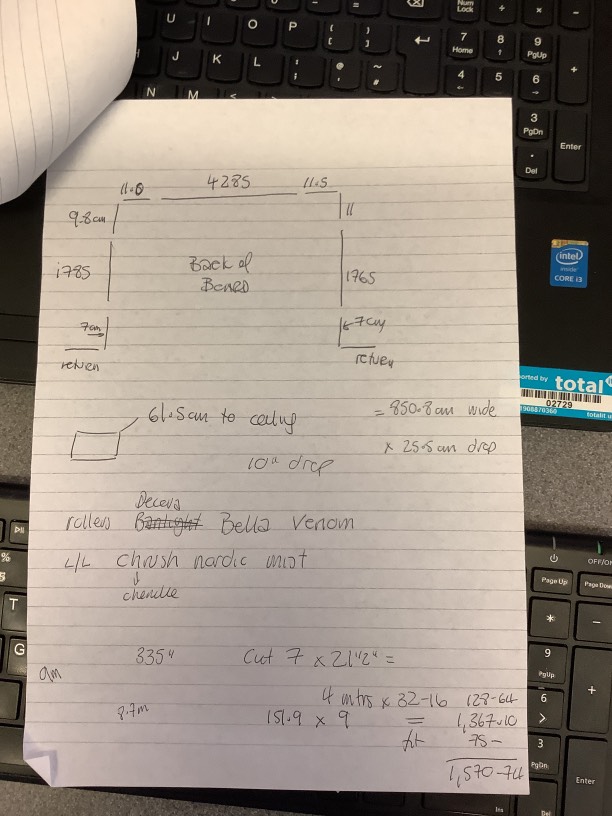 11.0 4285 11.5
9.8cm 11
1785 Back of Board 1765
7cm 7cm
return return
61.5cm to ceiling = 850.8cm wide
x 25.5cm drop
10" drop
Decora
rollers Banlight Bella Venom
L/L Chrush nordic mist
chenille
335" Cut 7 x 21"2" =
am
4 mtrs x 32-16 128-64
8.7m 151.9 x 9 = 1,367.10
fit 75-
1,570-74
U I O P { [ } ] Num Lock 7 Home 8 9 PgUp
J K L : ; @ ~ # 4 5 6 +
N M < 3 PgDn Enter
. Del
intel
inside
CORE i3
ported by total
02729
01908870360 totalit.u
% 5
T
G
ON/OFF
Page Up Page Down
* −
9 PgUp
6 > +
3 PgDn
Enter
Ins Del